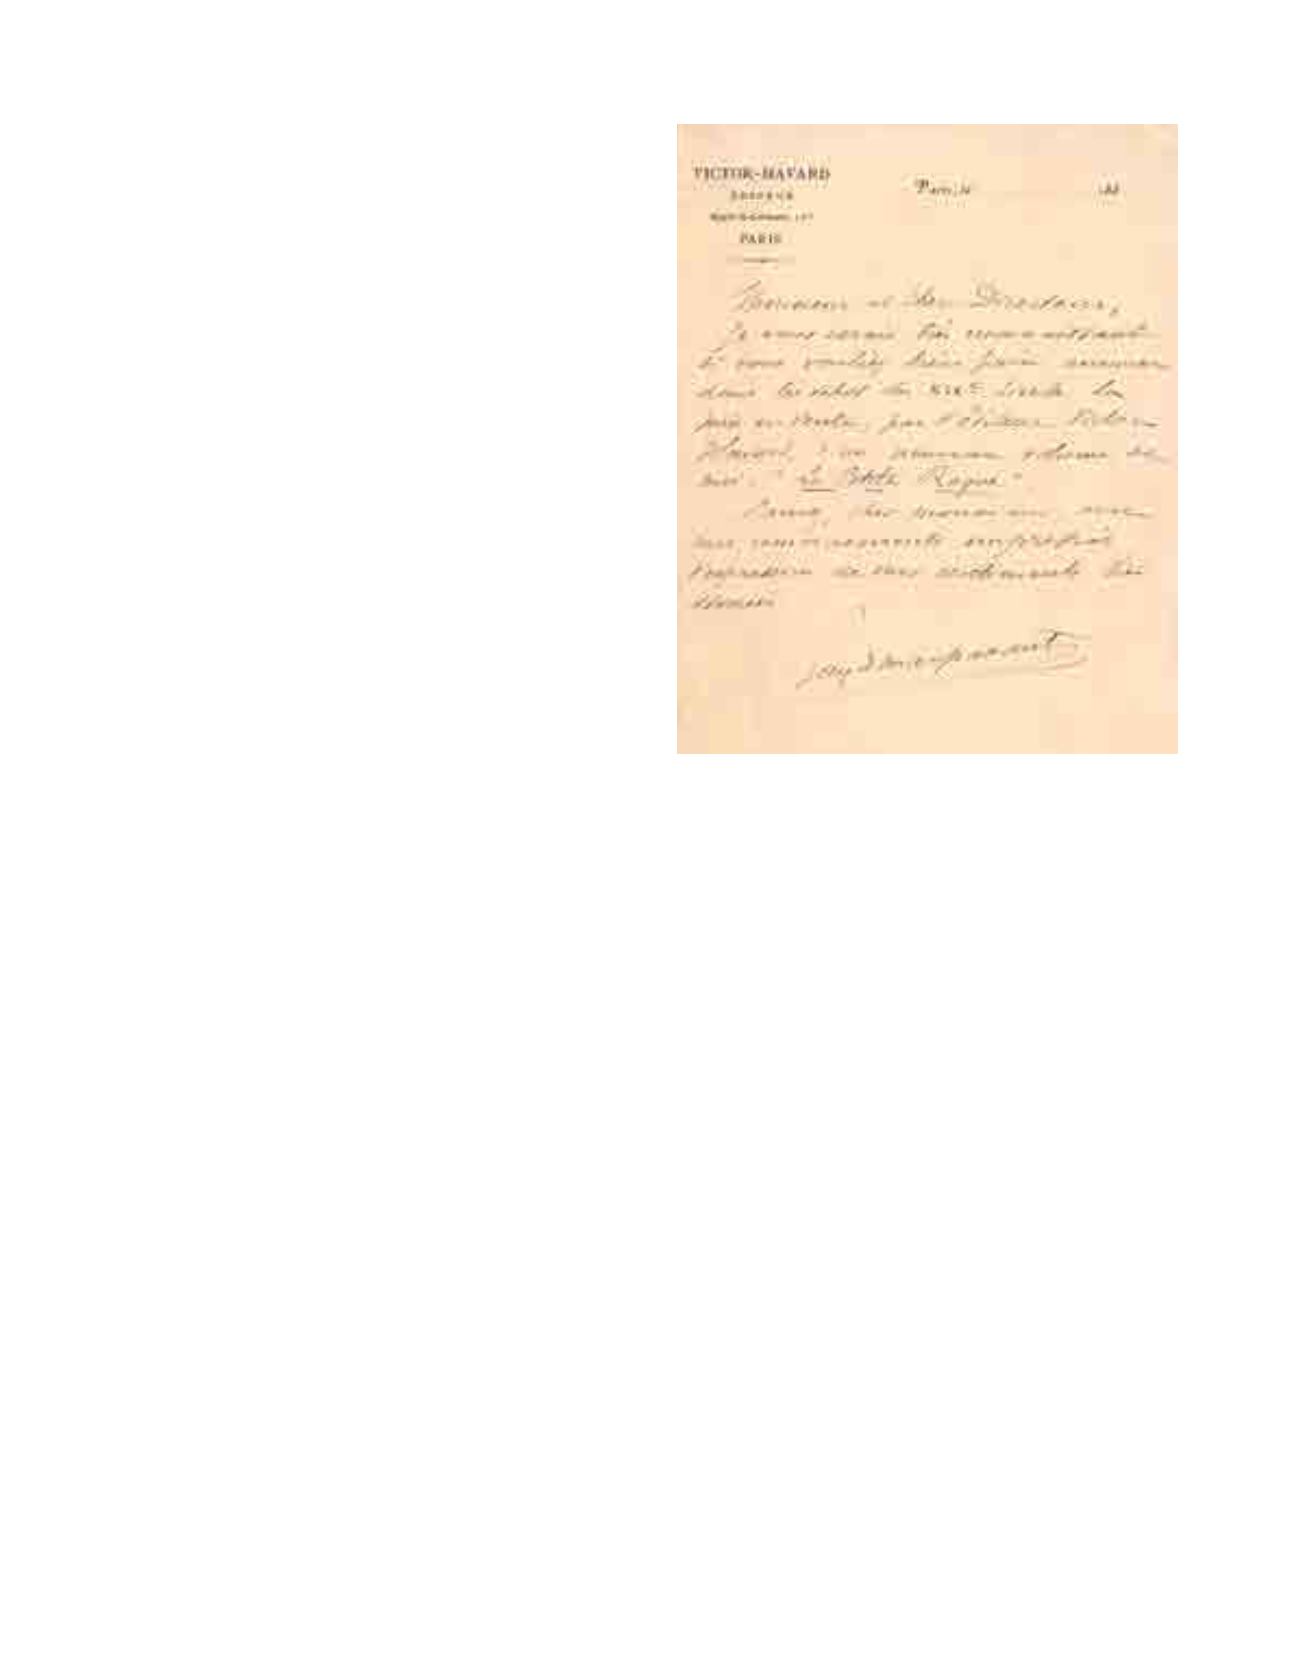 VICTOR-HAVARD
PARIS
Paris, le 188
Monsieur et cher Directeur,
Je vous serais très reconnaissant
si vous vouliez bien faire annoncer
dans les échos du XIXe Siècle la
mise en vente, par l'éditeur Victor
Havard, d'un nouveau volume de
moi : "La Petite Roque"
cher monsieur, avec
mes remerciements
l'expression de mes sentiments très
dévoués
Guy de Maupassant